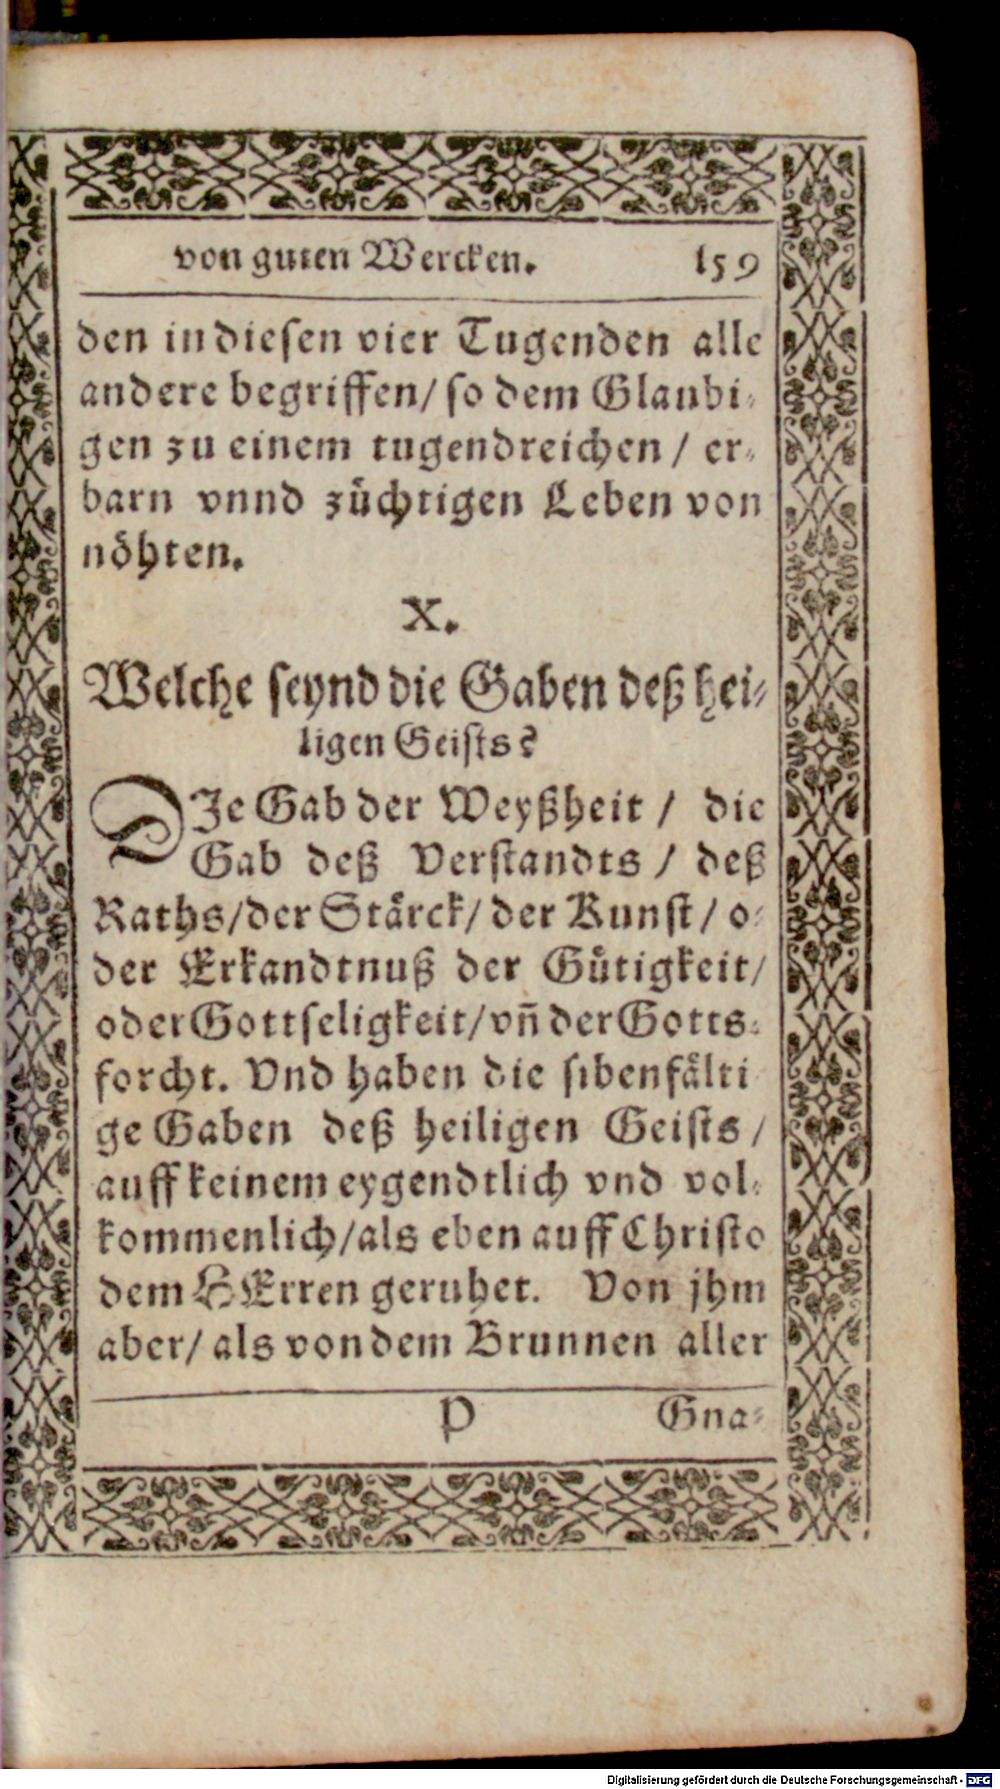 von guten Wercken. 159
den in diesen vier Tugenden alle
andere begriffen/ so dem Glaubi-
gen zu einem tugendreichen / er-
barn vnnd züchtigen Leben von
nöhten.
X.
Welche seynd die Gaben deß hei-
ligen Geists?
DIe Gab der Weyßheit / die
Gab deß Verstandts / deß
Raths/ der Stärck/ der Kunst/ o-
der Erkandtnuß der Gütigkeit/
oder Gottseligkeit/ vñ der Gotts-
forcht. Vnd haben die sibenfälti
ge Gaben deß heiligen Geists /
auff keinem eygendtlich vnd vol-
kommenlich/ als eben auff Christo
dem HErren geruhet. Von jhm
aber/ als von dem Brunnen aller
P Gna-
Digitalisierung gefördert durch die Deutsche Forschungsgemeinschaft - DFG